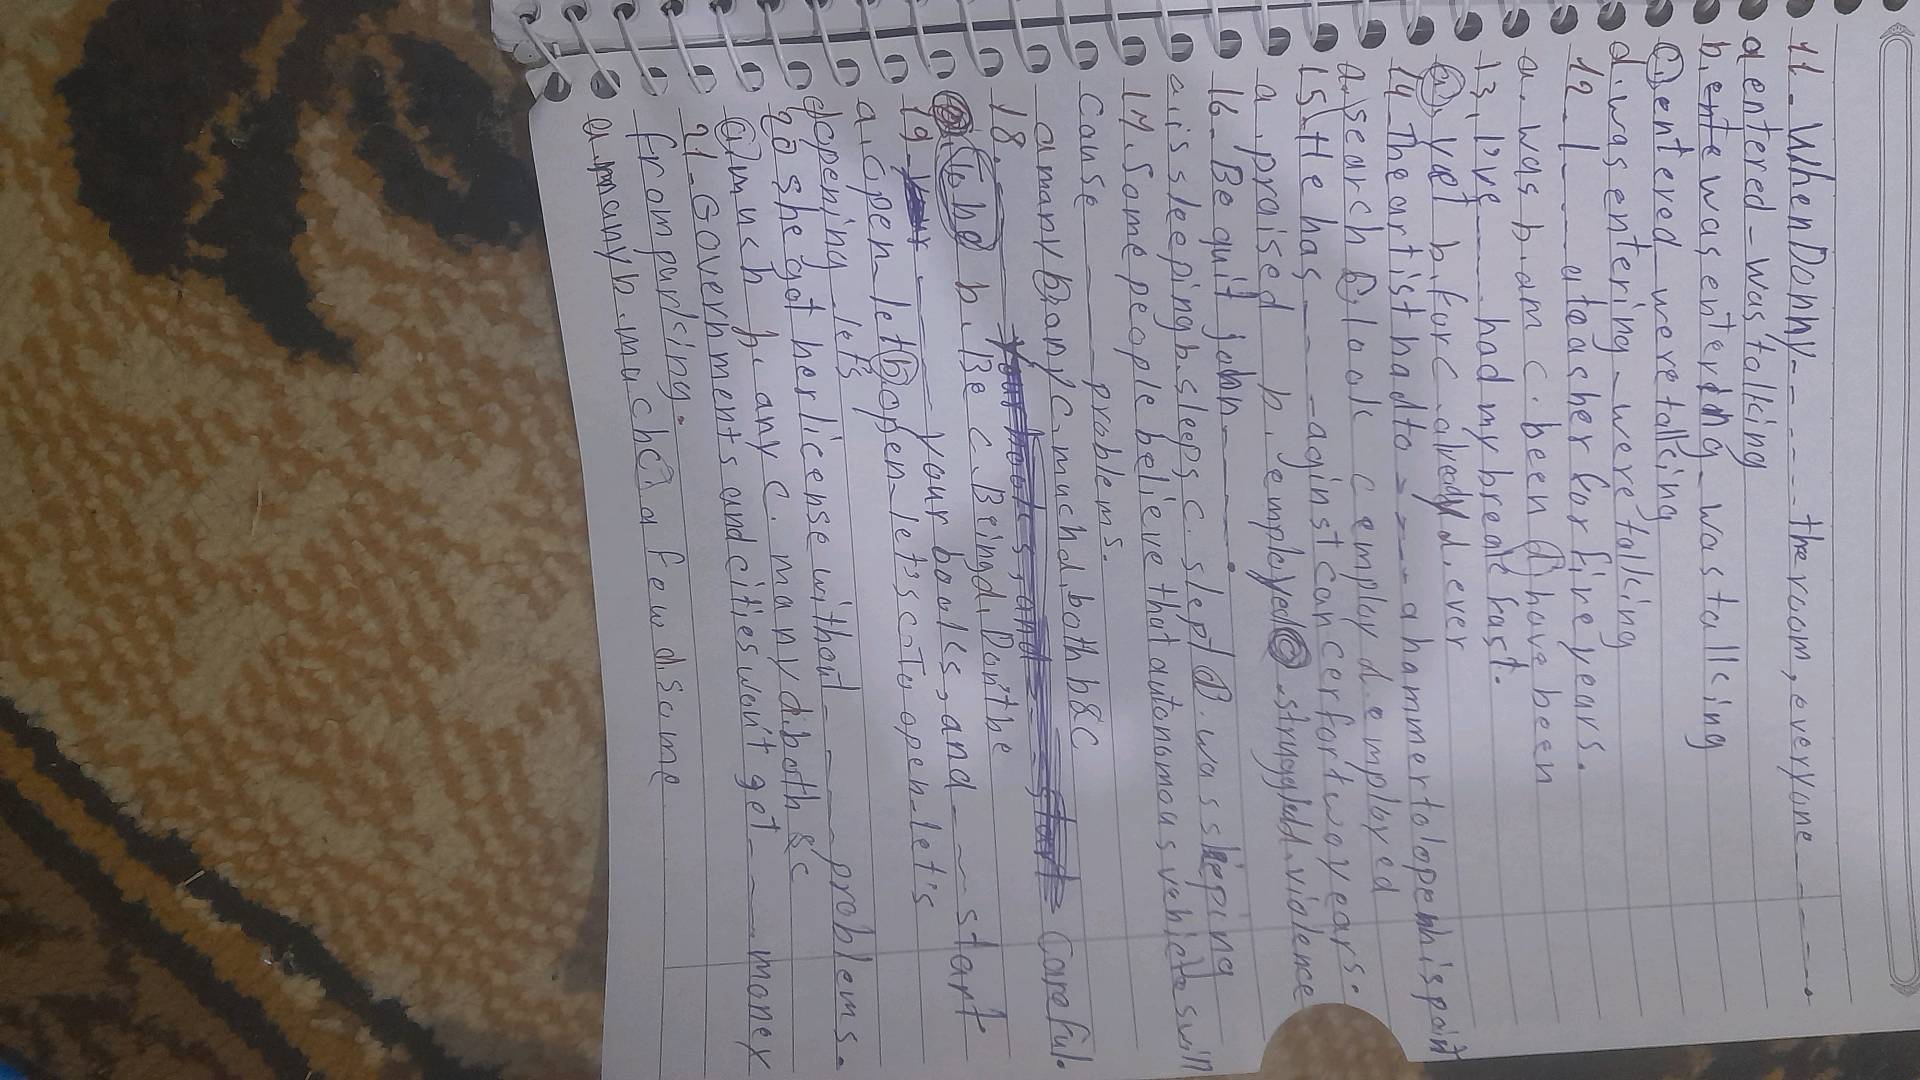 11-When Donny------the room, everyone-----.
a entered-was talking
b. ente was entering-was talking
c. entered-were talking
d. was entering-were talking
12-I____a teacher for five years.
a. was b. am c. been d. have been
13. I've____had my breakfast.
a. yet b. for c. already d. ever
14-The artist had to----a hammer to open his paint
a. search b. look c employ d. employed
15. He has____-aginst cancer for two years.
a. praised b. employed c. struggled d. violence
16-Be quit john-----.
a. is sleeping b. sleeps c. slept d. was sleeping
17. Some people believe that autonomous vehicles will
cause____problems.
a many b. any c. much d. both b&c
18.____ Careful.
a. To be b. Be c. Being d. Don't be
19-____your books, and---start
a. open-let b. open-let's c-To open-let's
d opening-let's
20 she got her license without____problems.
a. much b. any c. many d. both & c
21-Governments and cities won't get___money
from parking.
a. many b. much c. a few d. some